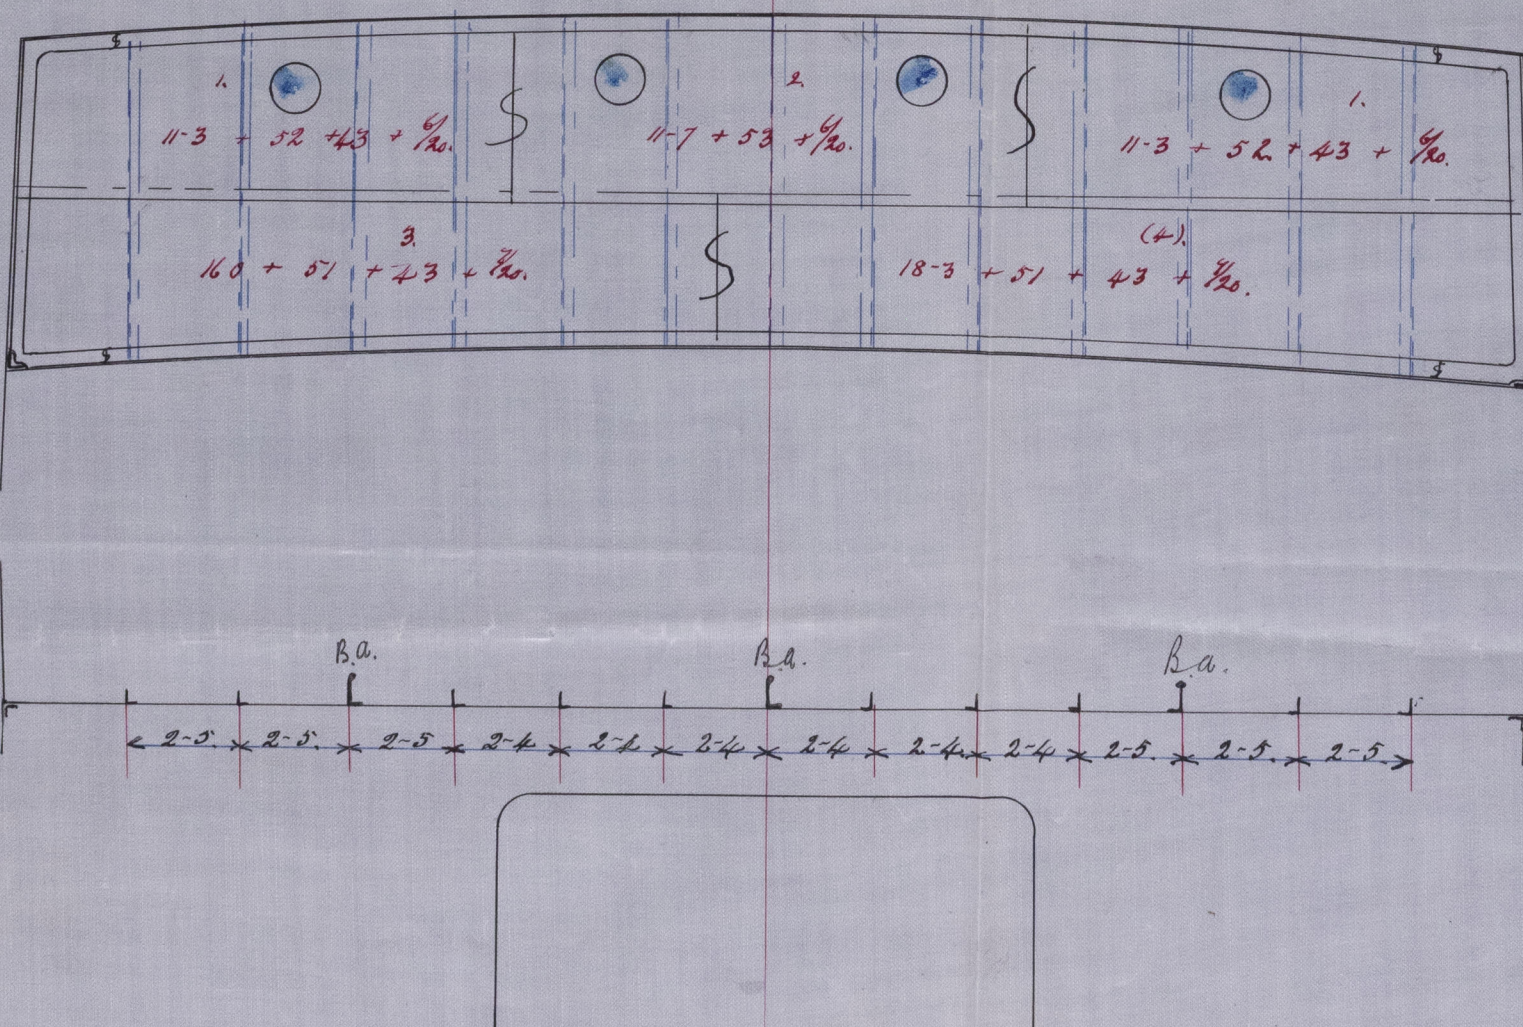 1.
2.
1.
11-3 + 52 + 43 + 6/20.
11-7 + 53 + 6/20.
11-3 + 52 + 43 + 6/20.
3.
(4).
16 0 + 51 + 43 + 7/20.
18-3 + 51 + 43 + 7/20.
B.a.
B.a.
B.a.
2-5. 2-5. 2-5 2-4 2-4 2-4 2-4 2-4. 2-4 2-5. 2-5. 2-5.